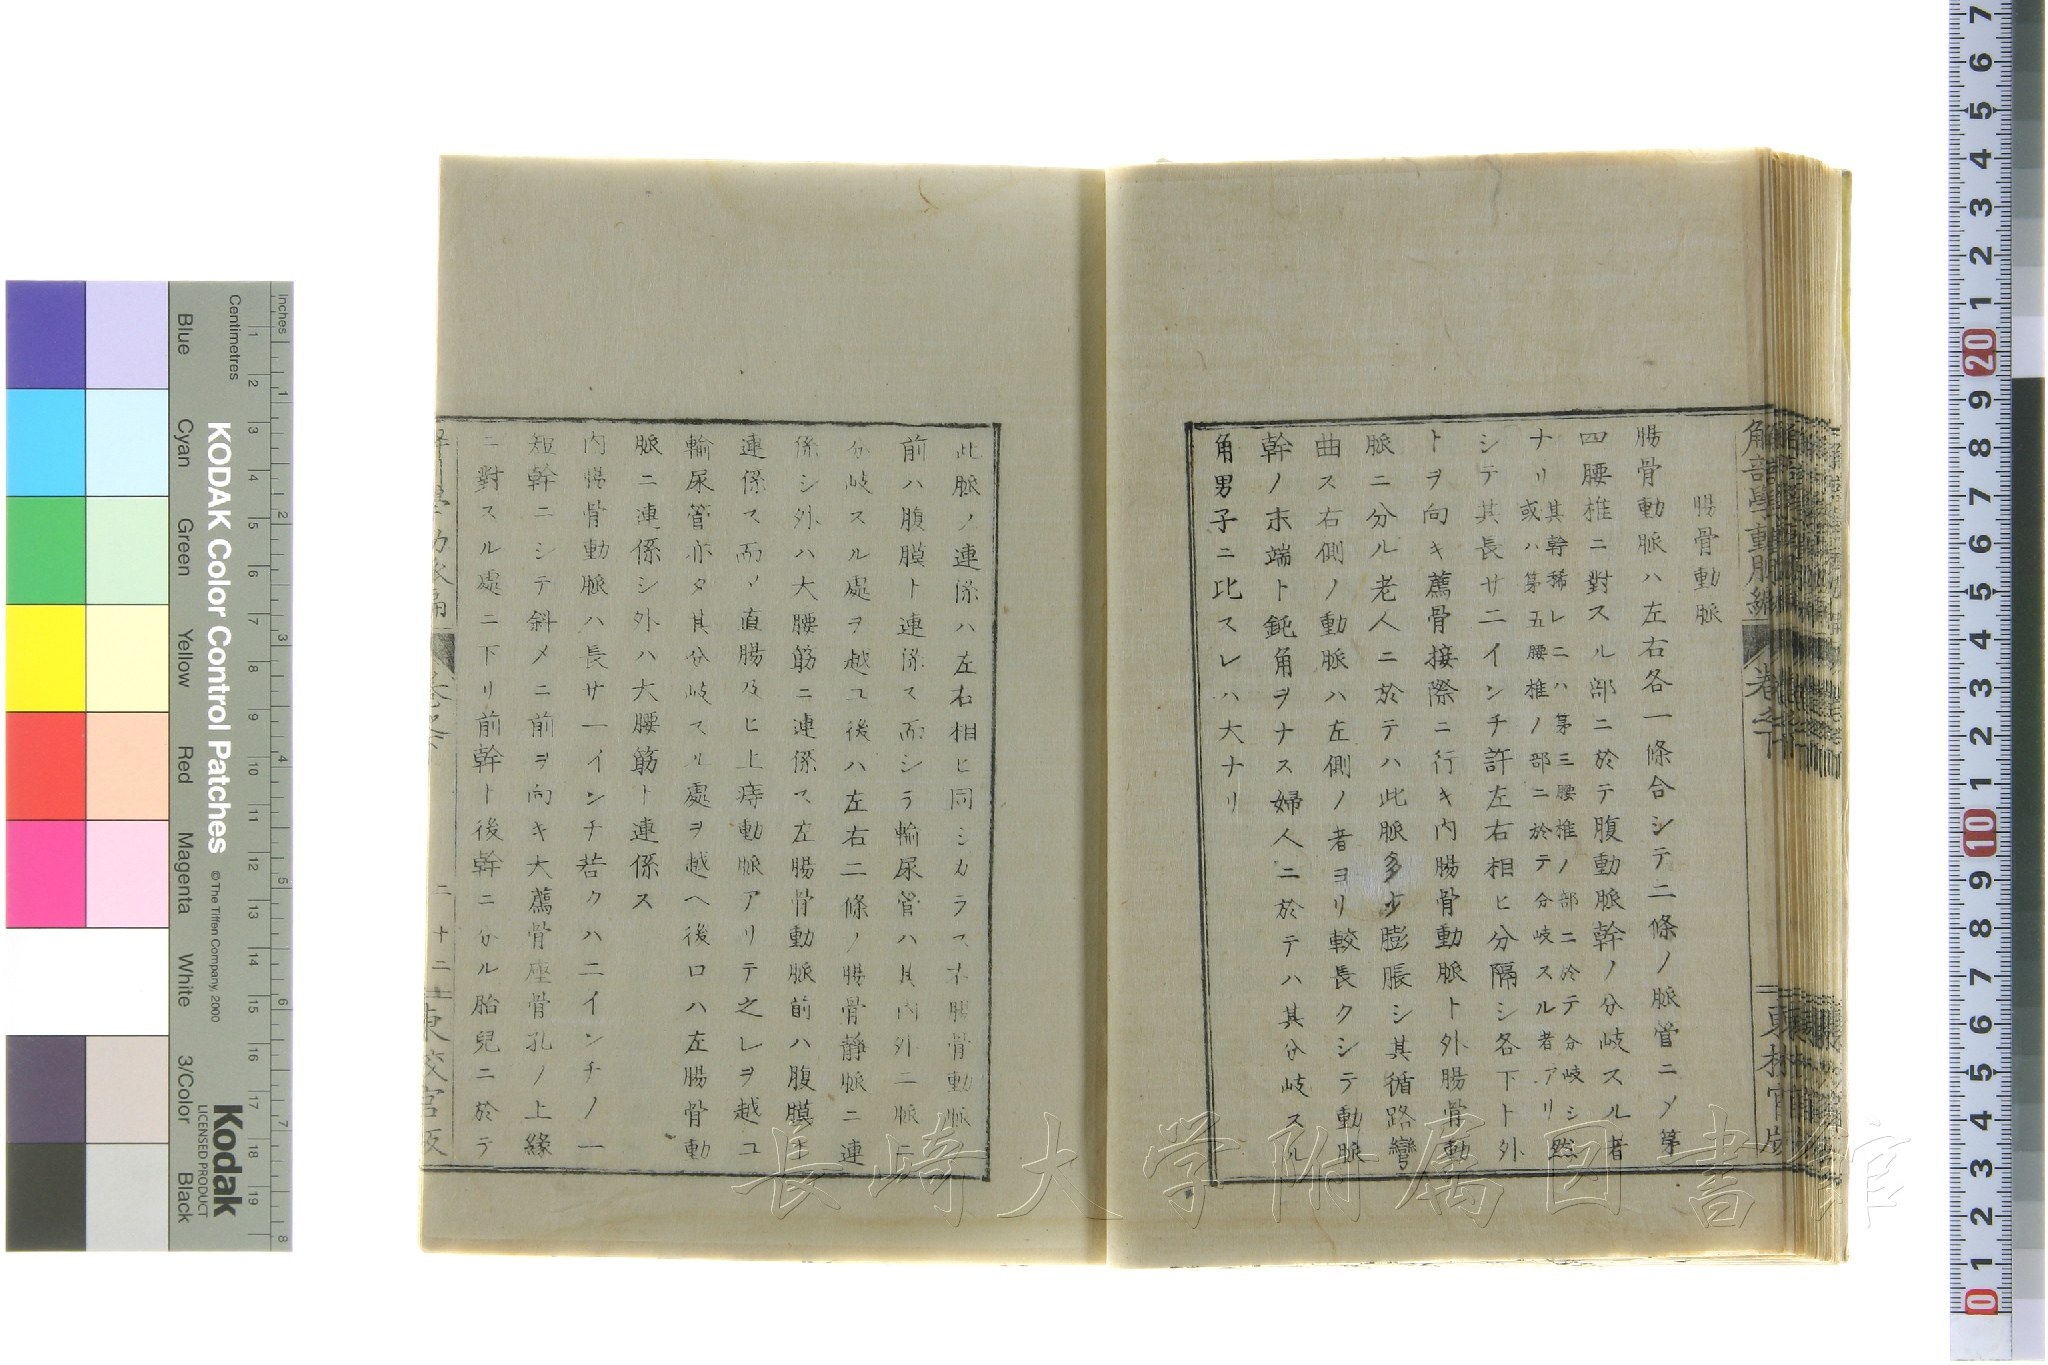 腸骨動脈
腸骨動脈ハ左右各一條合シテ二條ノ脈管ニメ第
四腰椎ニ對スル部ニ於テ腹動脈幹ノ分岐スル者
ナリ其幹稀レニハ第三腰椎ノ部ニ於テ分岐シ
或ハ第五腰椎ノ部ニ於テ分岐スル者アリ然
シテ其長サ二インチ許左右相ヒ分隔シ各下ト外
トヲ向キ薦骨接際ニ行キ內腸骨動脈ト外腸骨動
脈ニ分ル老人ニ於テハ此脈多少膨脹シ其循路彎
曲ス右側ノ動脈ハ左側ノ者ヨリ較長クシテ動脈
幹ノ末端ト鈍角ヲナス婦人ニ於テハ其分岐スル
角男子ニ比スレハ大ナリ
此脈ノ連係ハ左右相ヒ同シカラス右腸骨動脈ハ
前ハ腹膜ト連係ス而シテ輸尿管ハ其內外二脈ニ
分岐スル處ヲ越ユ後ハ左右二條ノ腸骨靜脈ニ連
係シ外ハ大腰筋ニ連係ス左腸骨動脈前ハ腹膜ト
連係ス而メ直腸及ヒ上痔動脈アリテ之レヲ越ユ
輸尿管亦タ其分岐スル處ヲ越ヘ後ロハ左腸骨動
脈ニ連係シ外ハ大腰筋ト連係ス
內腸骨動脈ハ長サ一インチ若クハ二インチノ一
短幹ニシテ斜メニ前ヲ向キ大薦骨座骨孔ノ上緣
ニ對スル處ニ下リ前幹ト後幹ニ分ル胎兒ニ於テ
二十二
東校官版
KODAK Color Control Patches
© The Tiffen Company, 2000
Kodak
LICENSED PRODUCT
Inches
Centimetres
Blue
Cyan
Green
Yellow
Red
Magenta
White
3/Color
Black
長崎大学附属図書館